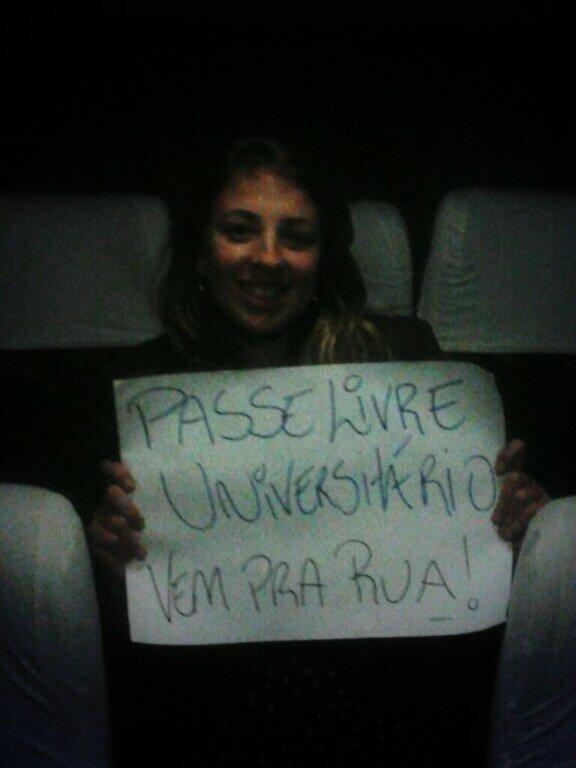 PASSE LIVRE
UNIVERSITÁRIO
VEM PRA RUA!